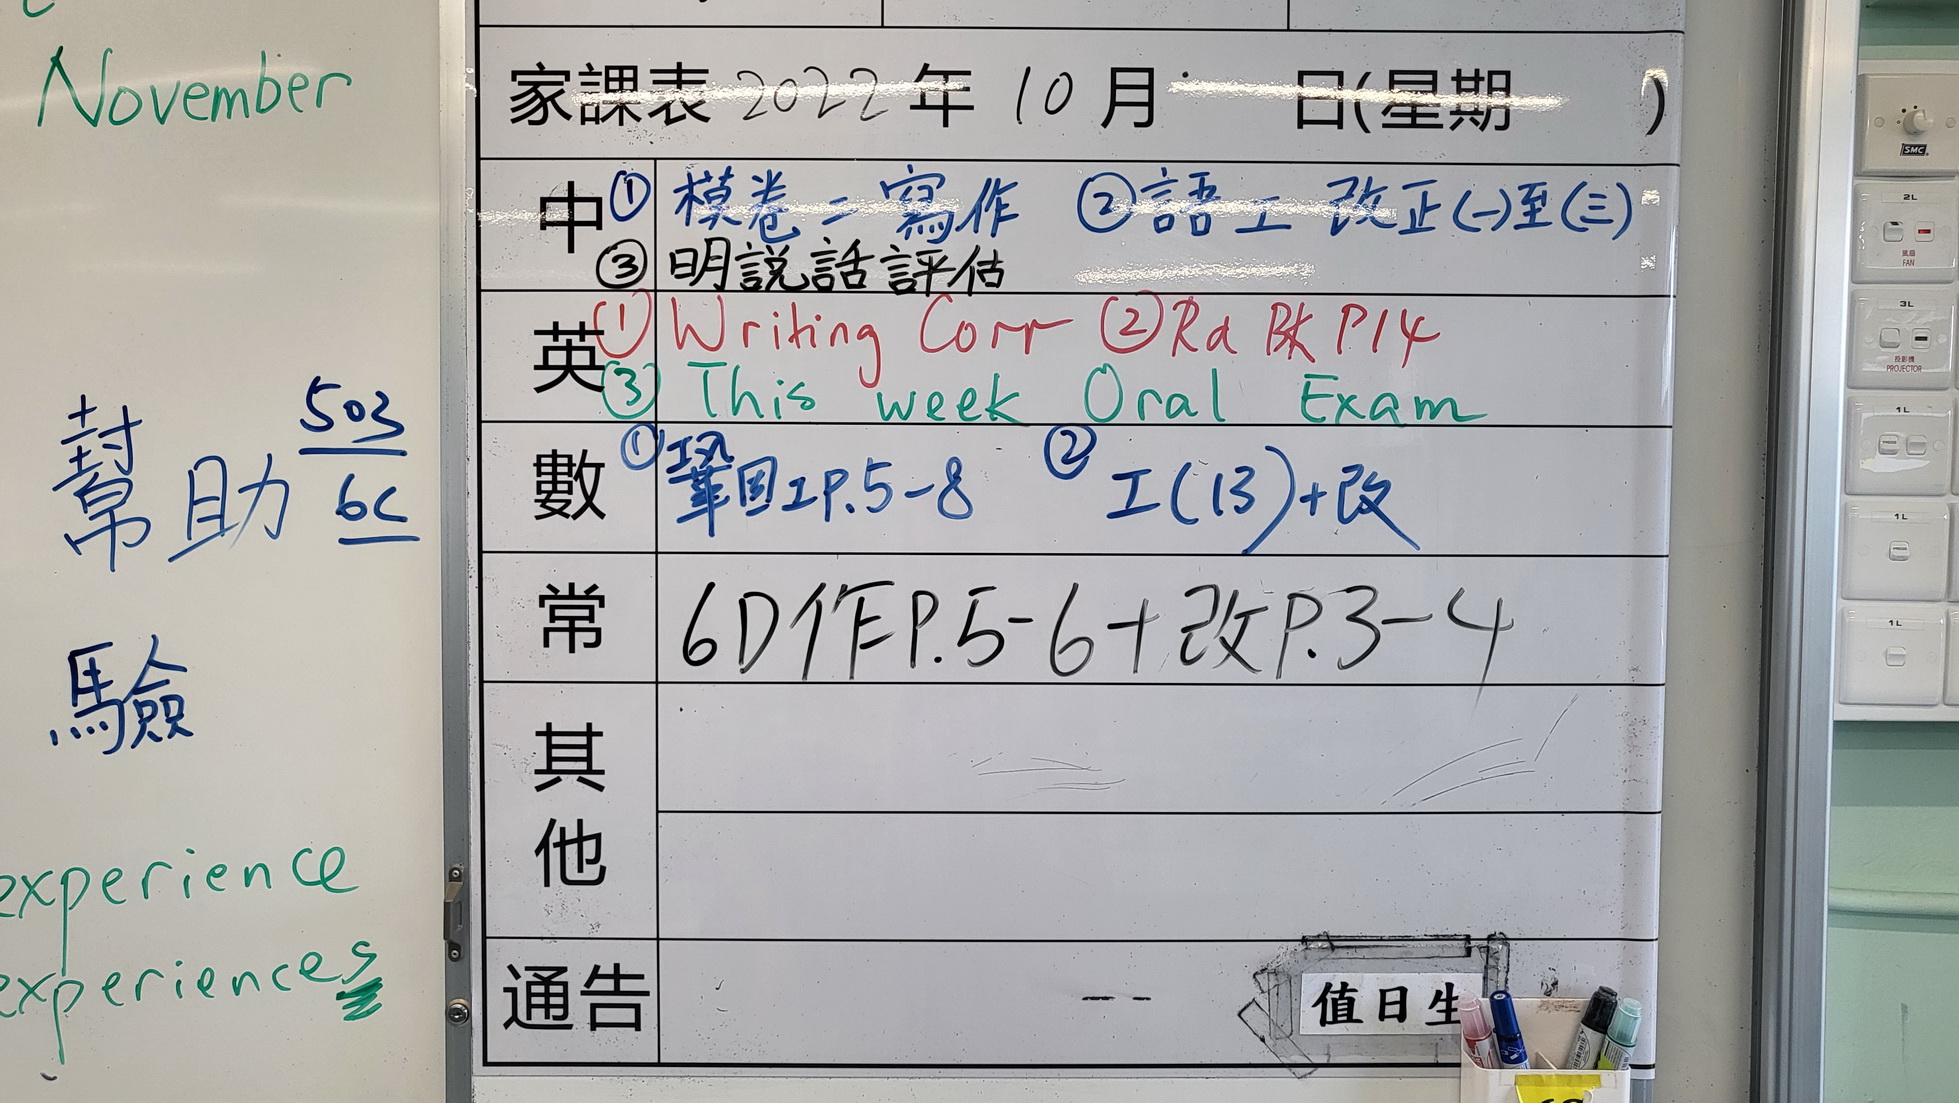 November
幫助 503
6C
驗
experience
experiences
家課表 2022 年 10 月 日(星期 )
中 ① 模卷二寫作 ②語工 改正(一)至(三)
③ 明說話評估
英 ① Writing Corr ② Rd BK P14
③ This week Oral Exam
數 ① 鞏固工P.5-8 ② 工(13)+改
常 6D作P.5-6+改P.3-4
其他
通告 --
值日生
SMC
2L
風扇
FAN
3L
投影機
PROJECTOR
1L
1L
1L